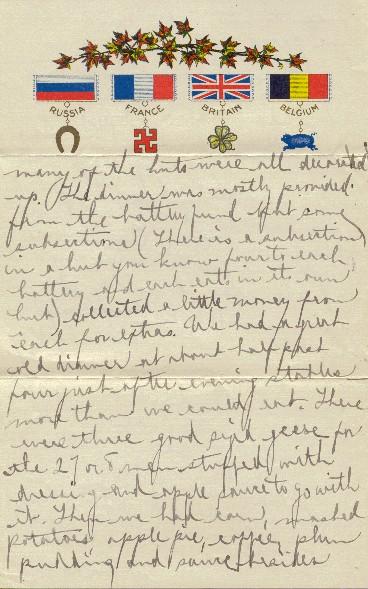 RUSSIA FRANCE BRITAIN BELGIUM
many of the huts were all decorated
up. The dinner was mostly provided
from the battery fund but some
subsections (There is a subsection
in a hut you know four to each
battery and each eats in its own
hut) collected a little money from
each for extras. We had a great
old dinner at about half past
four just after evening stables
more than we could eat. There
were three good sized geese for
the 27 or 8 men stuffed with
dressing and apple sauce to go with
it. Then we had corn, mashed
potatoes apple pie, coffee, plum
pudding and sauce besides